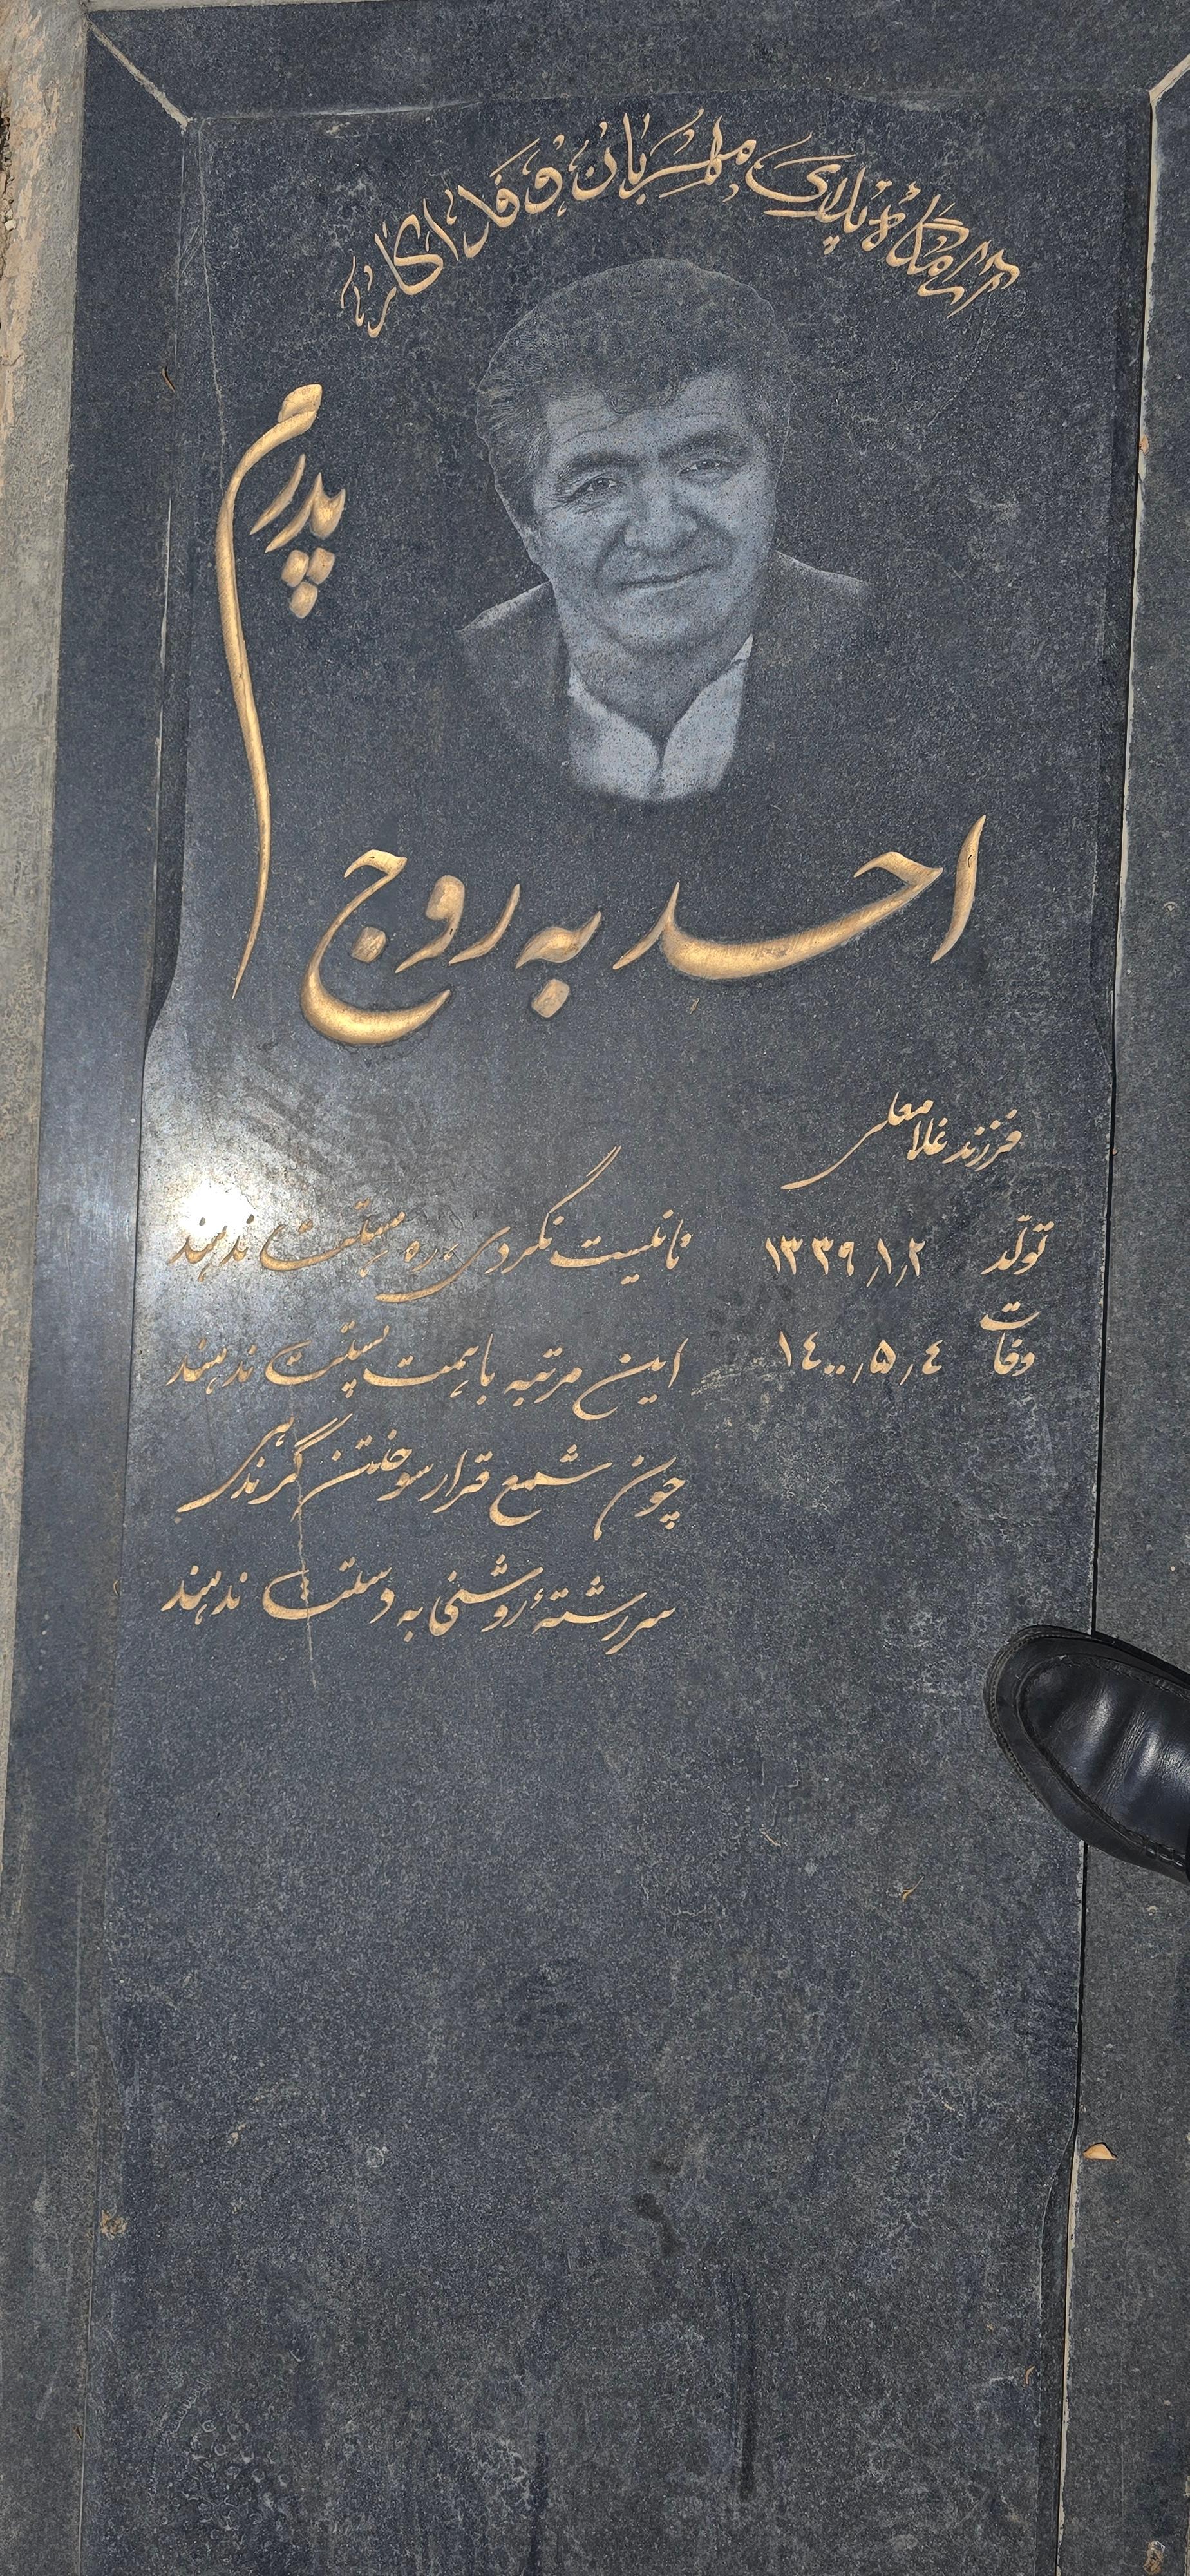 آرامگاه پدری مهربان و فداکار
پدرم
احد به روج
فرزند غلامعلی
تولّد ۱۳۳۹٫۱٫۲
وفات ۱٤۰۰٫۵٫٤
تا نیست نگردی ره هستت ندهند
این مرتبه با همت پستت ندهند
چون شمع قرار سوختن گر ندهی
سر رشتهٔ روشنی به دستت ندهند